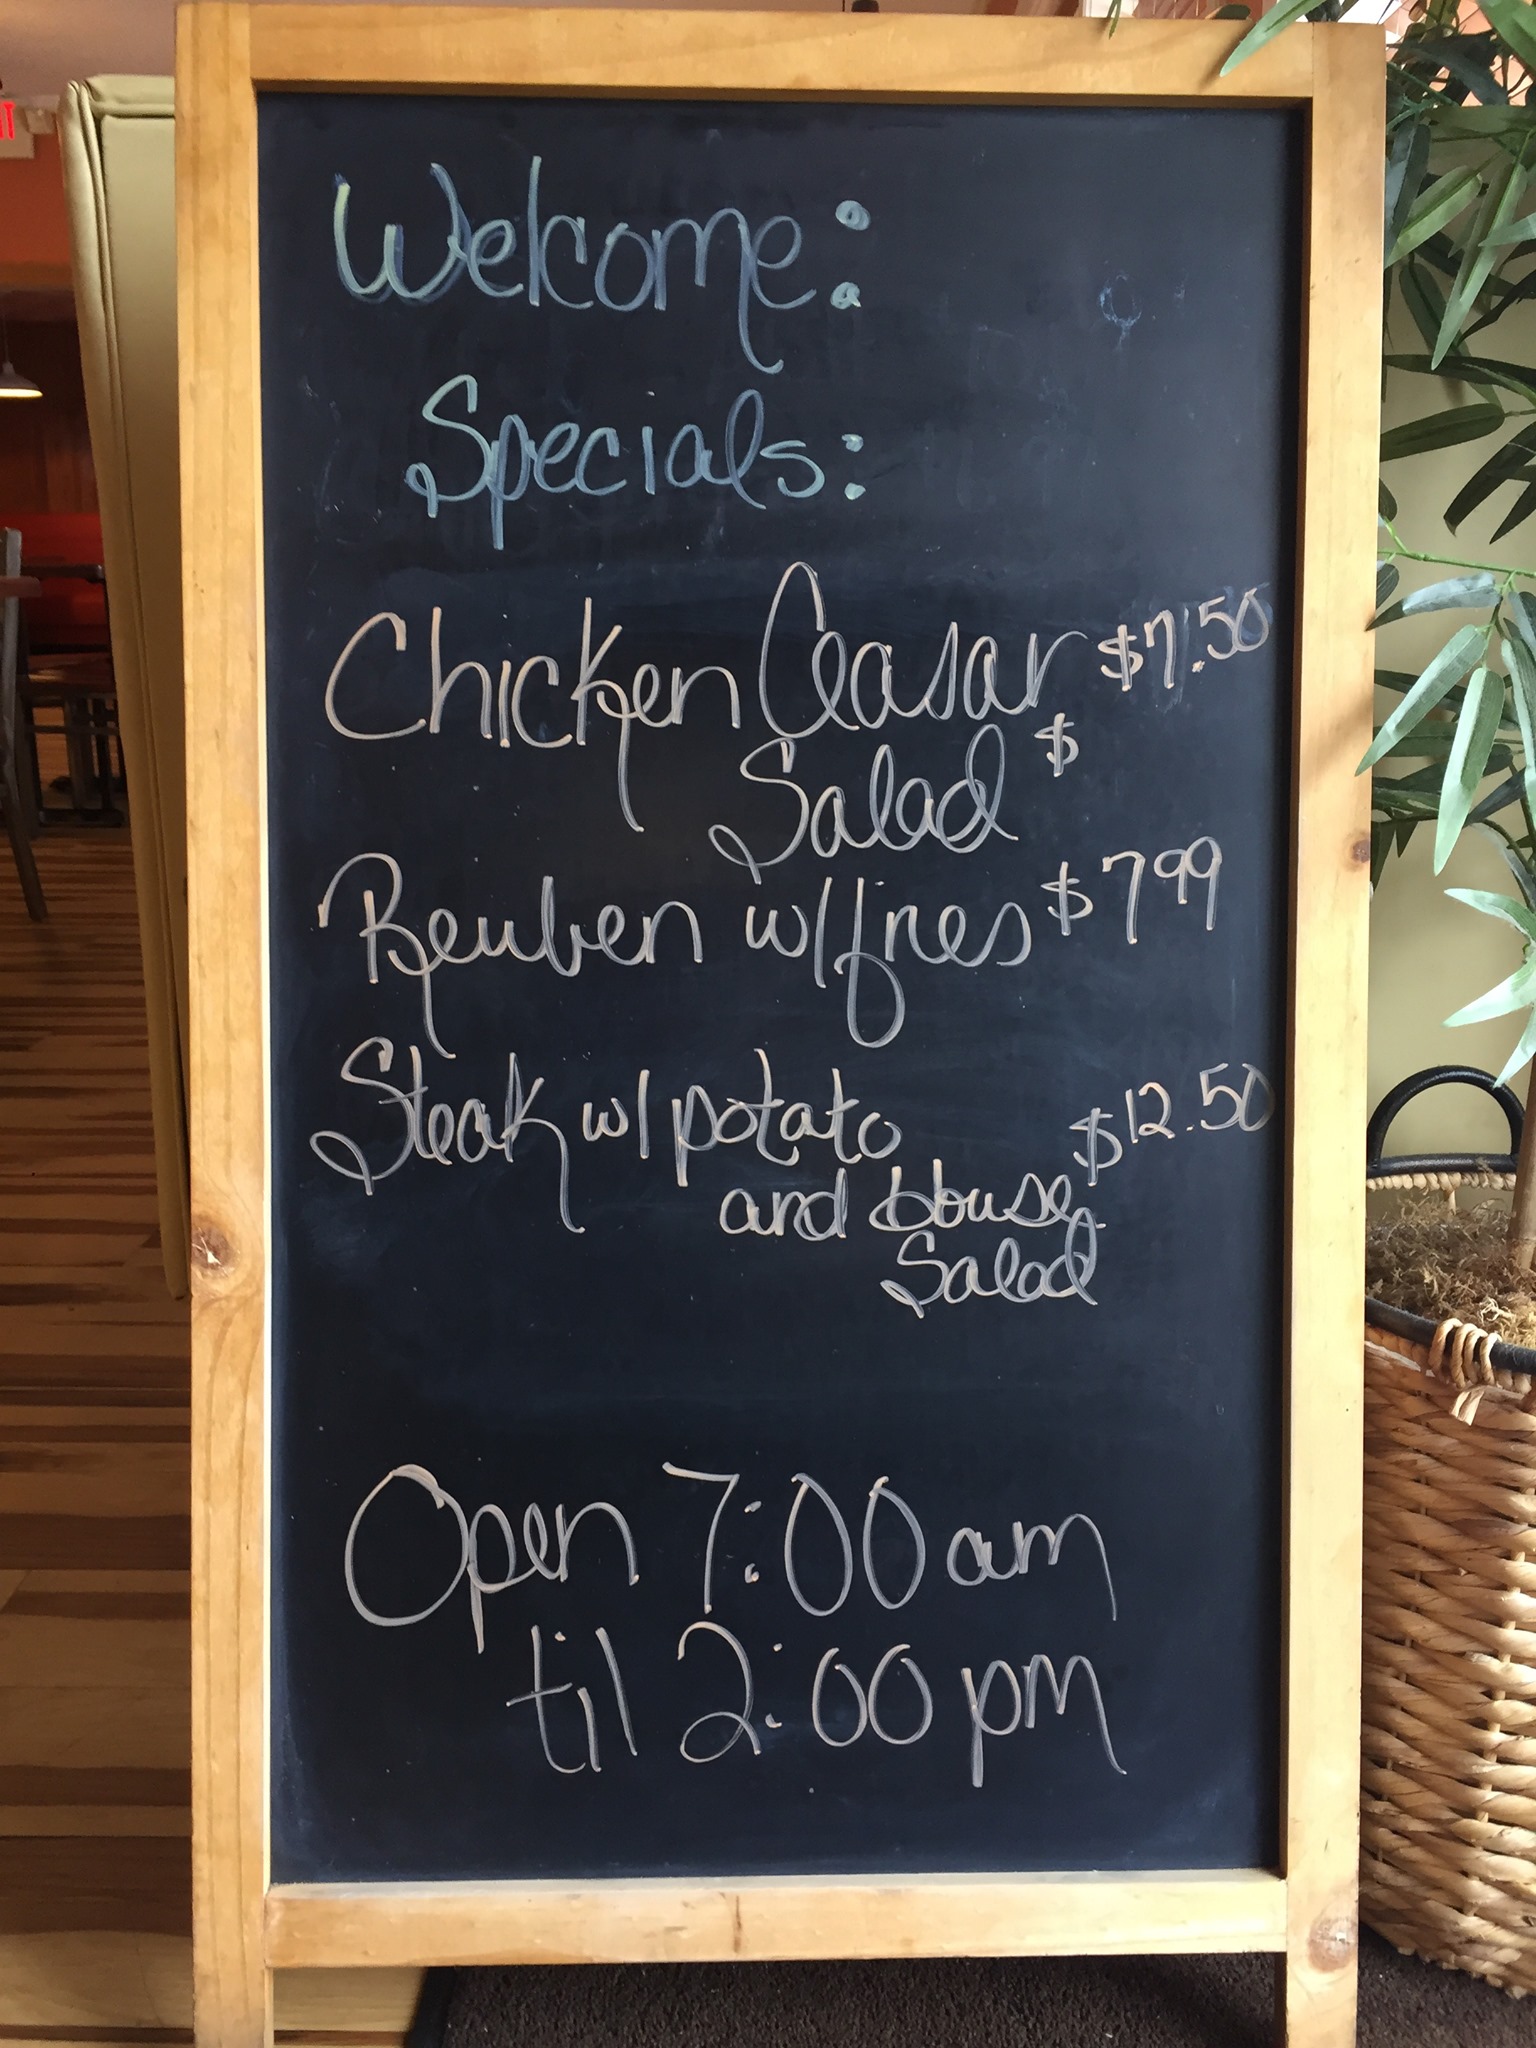 Welcome:
Specials:
Chicken Ceasar $7.50
Salad $
Reuben w/fries $7.99
Steak w/potato $12.50
and House
Salad
Open 7:00 am
til 2:00 pm